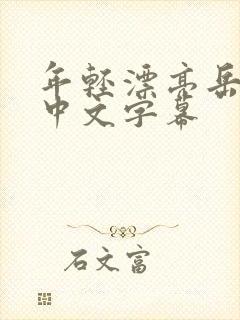 年轻漂亮岳
中文字幕
石文富